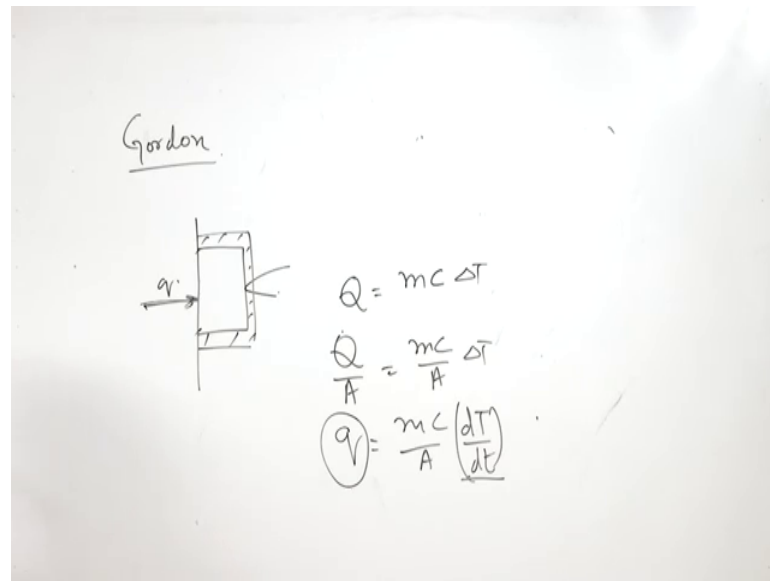 Gordon
q
Q = mC ΔT
Q/A = mC/A ΔT
q = mC/A (dT/dt)